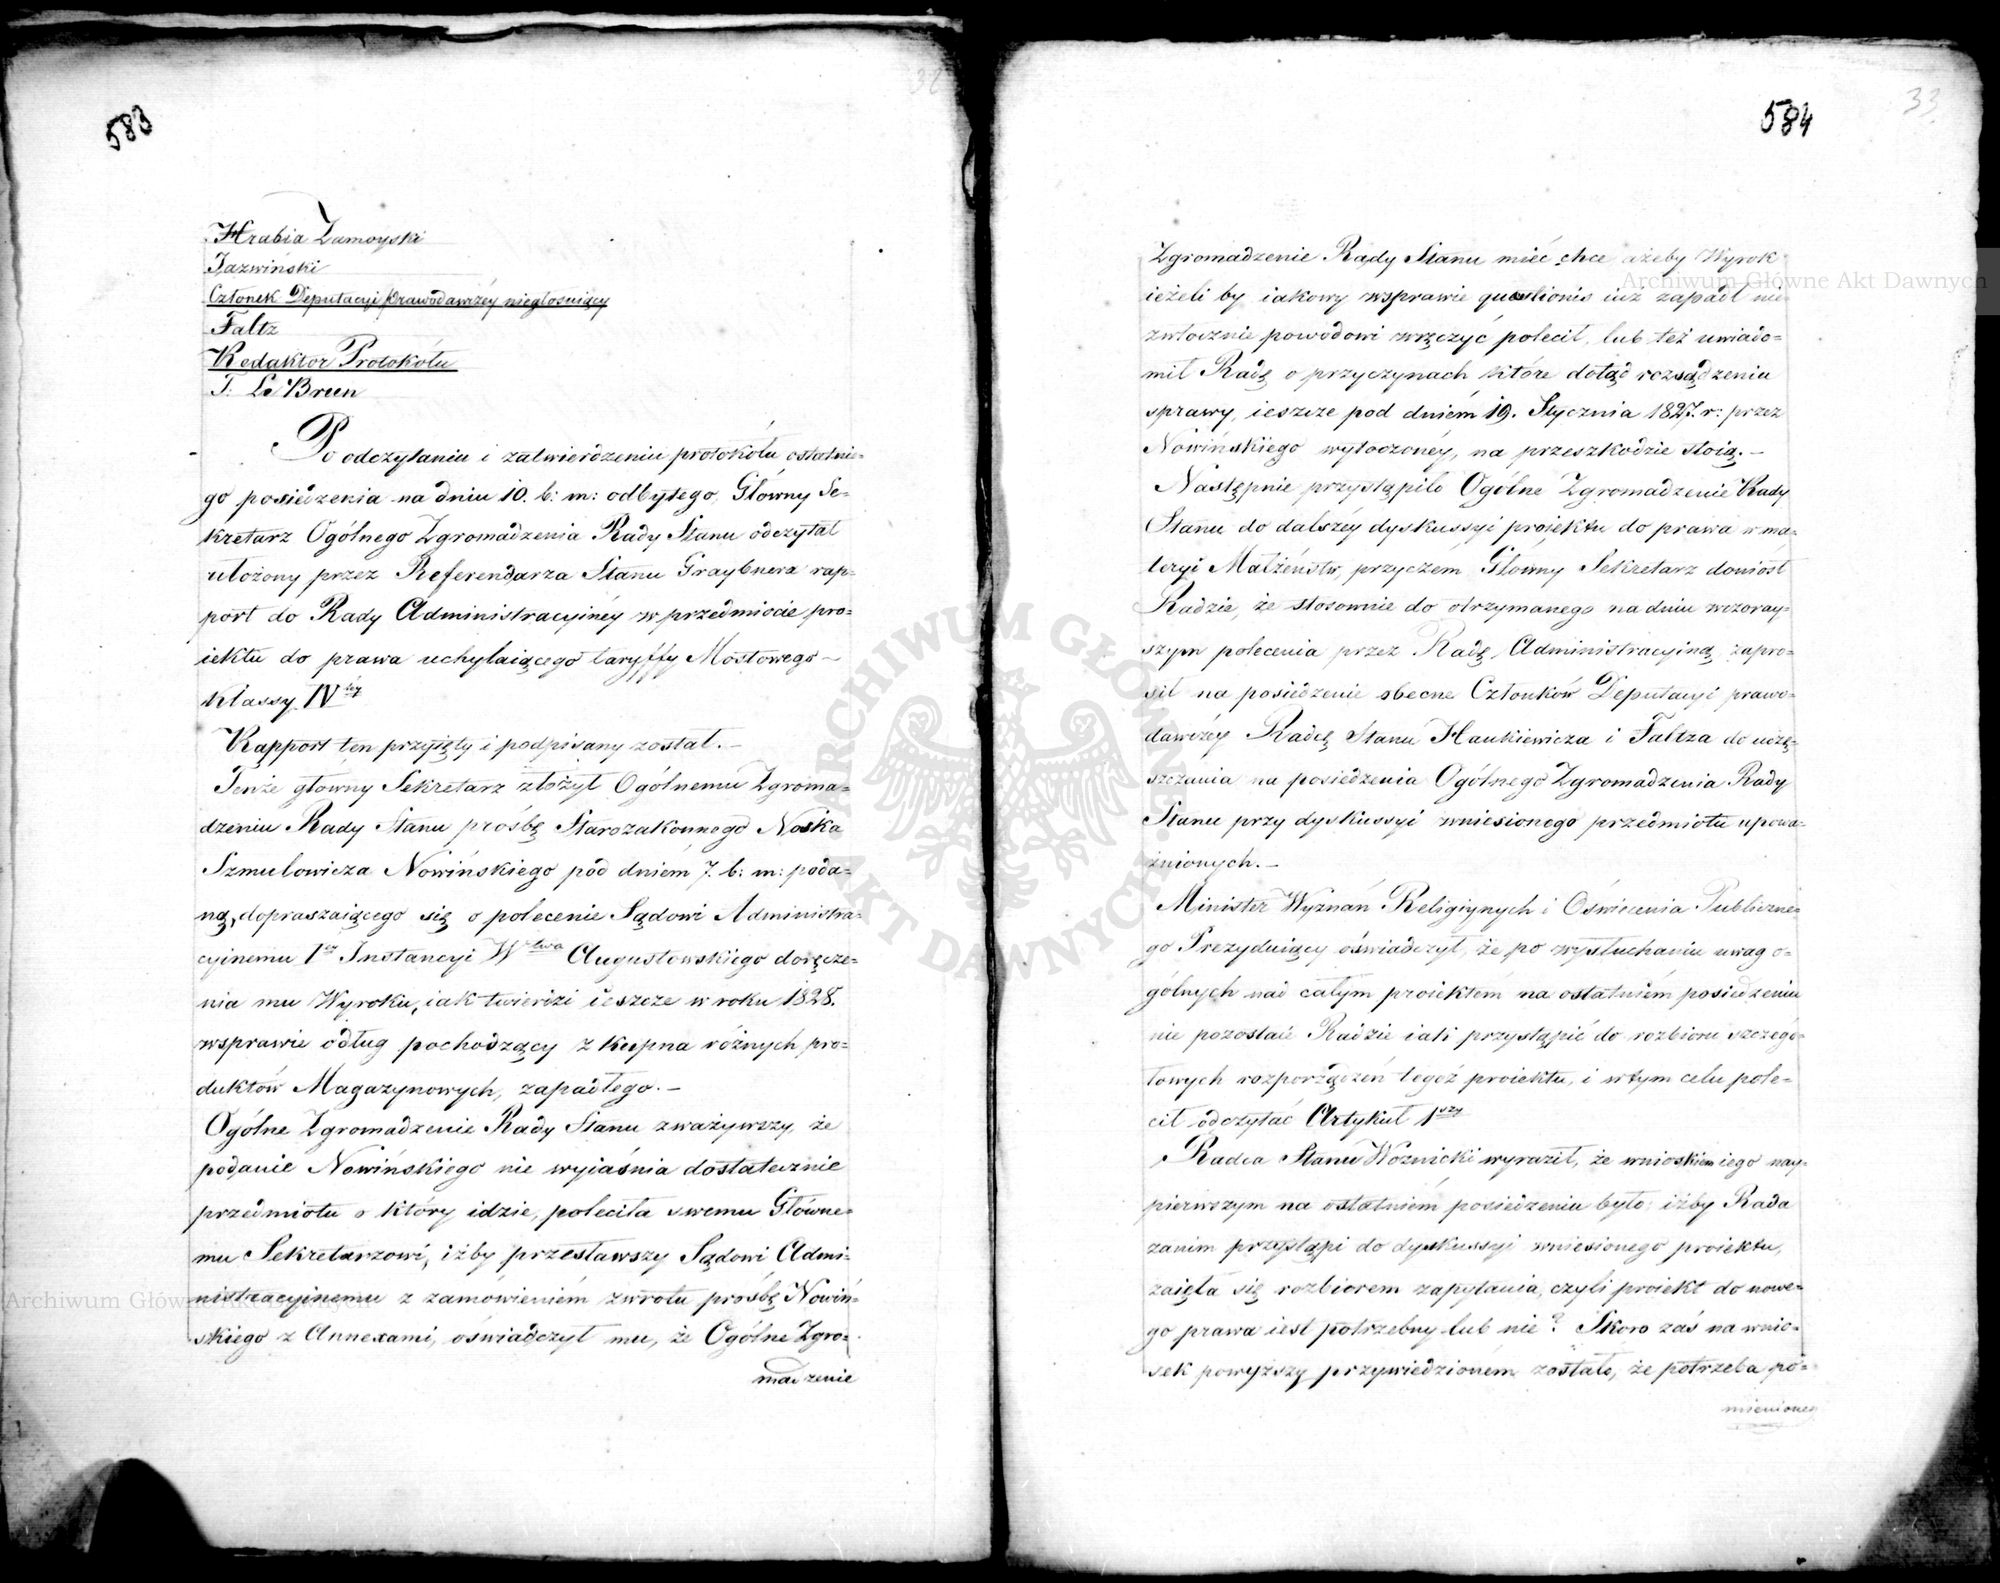 583
32
Hrabia Zamoyski
Jazwiński
Członek Deputacyi Prawodawczéy niegłosuiący
Faltz
Redaktor Protokółu
J: Le Brun
Po odczytaniu i zatwierdzeniu protokółu ostatnie=
go posiedzenia na dniu 10. b: m: odbytego, Główny Se=
kretarz Ogólnego Zgromadzenia Rady Stanu odczytał
ułożony przez Referendarza Stanu Graybnera rap=
port do Rady Administracyjnéy w przedmiocie pro=
iektu do prawa uchylaiącego taryffy Mostowego
klassy IVtéy
Rapport ten przyięty i podpisany został.—
Tenże główny Sekretarz złożył Ogólnemu Zgroma=
dzeniu Rady Stanu prośbę Starozakonnego Noska
Szmulowicza Nowińskiego pod dniem 7. b: m: poda=
ną, dopraszaiącego się o polecenie Sądowi Administra=
cyinemu 1éy Instancyi Wtwa Augustowskiego doręcze=
nia mu Wyroku, iak twierdzi ieszcze w roku 1828.
wsprawie odług pochodzący z kupna różnych pro=
duktów Magazynowych, zapadłego.—
Ogólne Zgromadzenie Rady Stanu zważywszy, że
podanie Nowińskiego nie wyiaśnia dostatecznie
przedmiotu o który idzie, poleciła swemu Główne=
mu Sekretarzowi, iżby przesławszy Sądowi Admi=
nistracyjnemu z zamówieniem zwrotu prośbę Nowiń=
skiego z Annexami, oświadczył mu, że Ogólne Zgro=
madzenie
584
33
Zgromadzenie Rady Stanu mieć chce ażeby Wyrok
ieżeli by iakowy wsprawie questionis iuż zapadł nie=
zwłocznie powodowi wręczyć polecił, lub też uwiado=
mił Radę o przyczynach które dotąd rozsądzeniu
sprawy, ieszcze pod dniem 19. Stycznia 1827. r: przez
Nowińskiego wytoczonéy, na przeszkodzie stoią.—
Następnie przystąpiło Ogólne Zgromadzenie Rady
Stanu do dalszéy dyskussyi proiektu do prawa w ma=
teryi Małżeństw, przyczém Główny Sekretarz doniósł
Radzie, że stosownie do otrzymanego na dniu wczoray=
szym polecenia przez Radę Administracyiną zapro=
sił na posiedzenie obecne Członków Deputacyi prawo=
dawczéy Radcę Stanu Hankiewicza i Faltza do uczę=
szczania na posiedzenia Ogólnego Zgromadzenia Rady
Stanu przy dyskussyi wniesionego przedmiotu upowa=
żnionych.—
Minister Wyznań Religiynych i Oświecenia Publiczne=
go Prezyduiący oświadczył, że po wysłuchaniu uwag o=
gólnych nad całym proiektém na ostatniém posiedzeniu
nie pozostaie Radzie iak przystąpić do rozbioru szczegó=
łowych rozporządzeń tegoż proiektu, i w tym celu pole=
cił odczytać Artykuł 1wszy
Radca Stanu Woznicki wyraził, że wnioskiem iego nay=
pierwszym na ostatniém posiedzeniu było: iżby Rada
zanim przystąpi do dyskussyi wniesionego proiektu,
zaięła się rozbiorem zapytania, czyli proiekt do nowe=
go prawa iest potrzebny lub nie? Skoro zaś na wnio=
sek powyższy przywiedzioném zostało, że potrzeba po=
mienione
Archiwum Główne Akt Dawnych
Archiwum Główne Akt Dawnych
ARCHIWUM GŁÓWNE AKT DAWNYCH